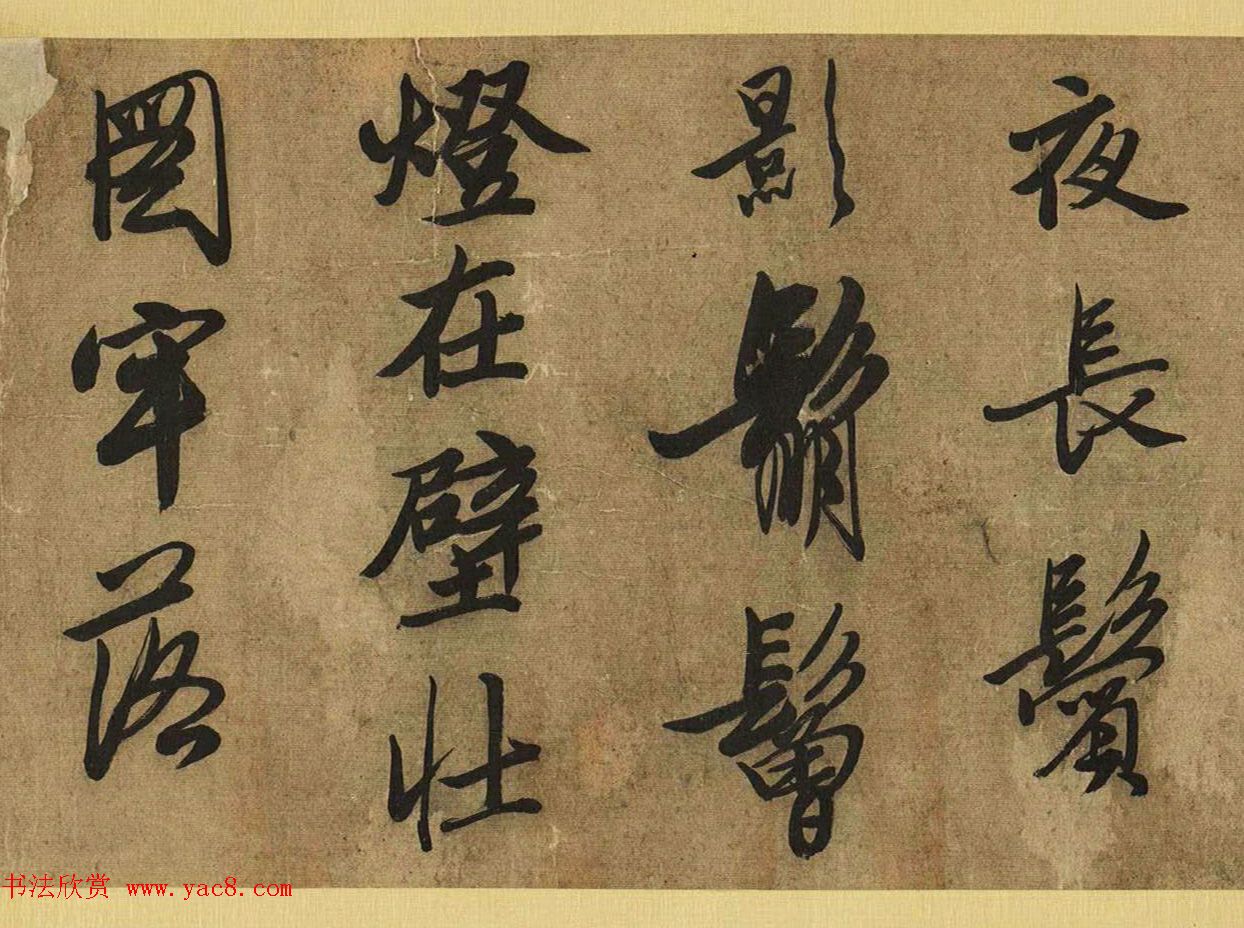 夜長鬢
影鬅鬙
燈在壁壯
圖牢落
书法欣赏 www.yac8.com